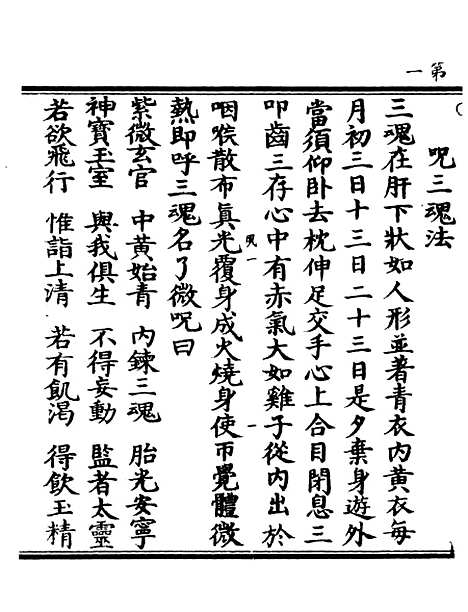 第一
呪三魂法
三魂在肝下狀如人形並著青衣内黃衣每
月初三日十三日二十三日是夕棄身遊外
當須仰卧去枕伸足交手心上合目閉息三
叩齒三存心中有赤氣大如雞子從内出於
咽喉散布真光覆身成火燒身使帀覺體微
呪一
熱即呼三魂名了微呪曰
紫微玄宫 中黃始青 内鍊三魂 胎光安寧
神寶玉室 與我俱生 不得妄動 監者太靈
若欲飛行 惟詣上清 若有飢渴 得飲玉精